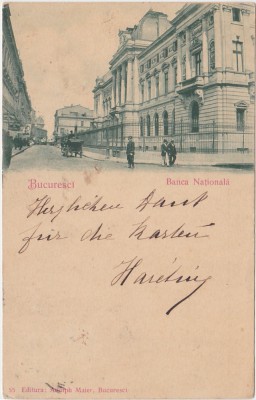 Bucuresci Banca Națională
Herzlichen Dank
für die Karten
10 Editura: Ad. Maier, Bucuresci